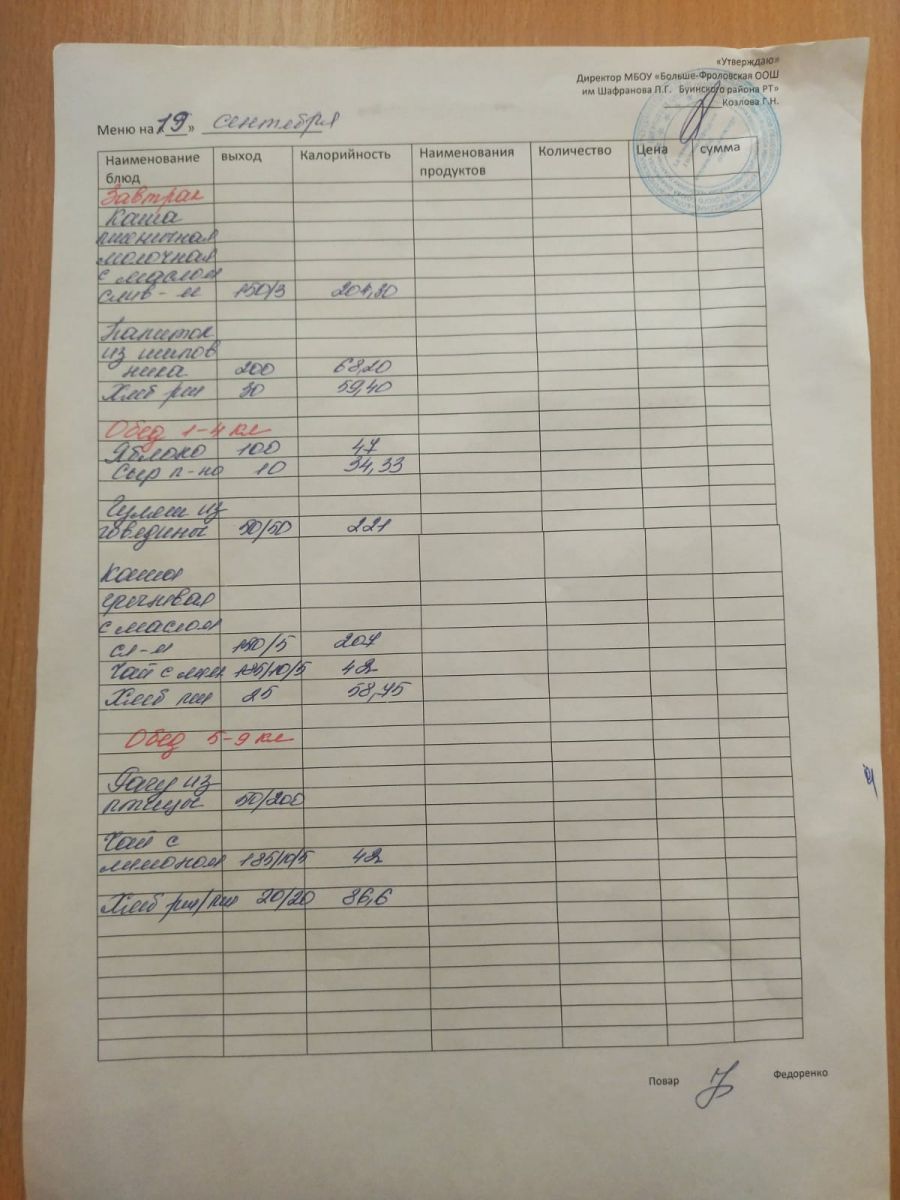 «Утверждаю»
Директор МБОУ «Больше-Фроловская ООШ
им Шафранова Л.Г. Буинского района РТ»
Козлова Г.Н.
Меню на 19 » сентября
Наименование блюд выход Калорийность Наименования продуктов Количество Цена сумма
Завтрак
Каша
пшеничная
молочная
с маслом
слив-м 150/3 204,30
Напиток
из шипов
ника 200 68,20
Хлеб рж 30 59,40
Обед 1-4 кл
Яблоко 100 47
Сыр п-но 10 34,33
Гуляш из
говядины 50/50 221
Каша
гречневая
с маслом
сл-м 150/5 207
Чай с лим 185/10/5 42
Хлеб пш 25 58,75
Обед 5-9 кл
Рагу из
птицы 50/200
Чай с
лимоном 185/10/5 42
Хлеб рж/пш 20/20 86,6
Повар Федоренко